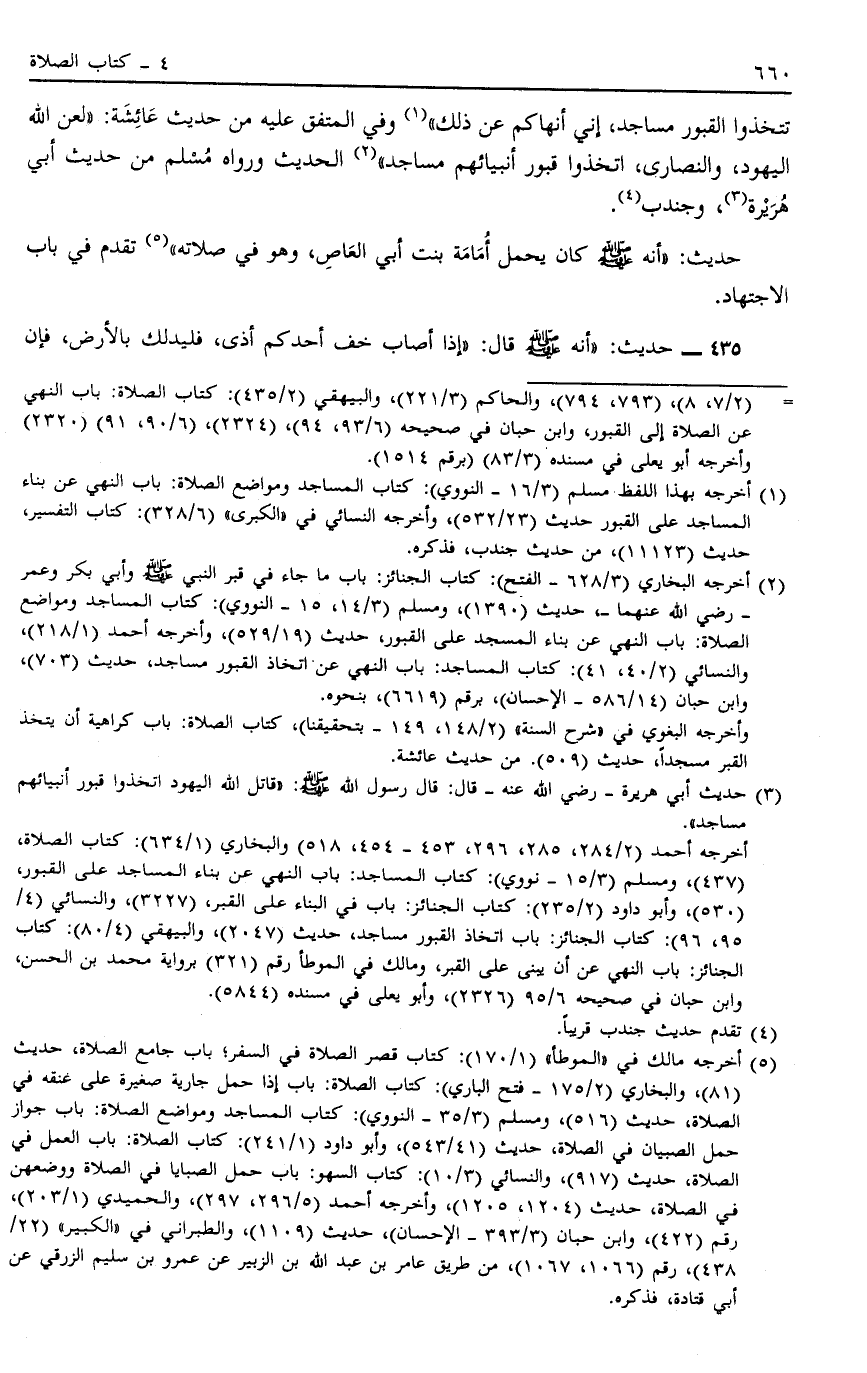 ٦٦٠ ٤ ـ كتاب الصلاة
تتخذوا القبور مساجد، إني أنهاكم عن ذلك»(١) وفي المتفق عليه من حديث عَائِشَة: «لعن الله
اليهود، والنصارى، اتخذوا قبور أنبيائهم مساجد»(٢) الحديث ورواه مُسْلم من حديث أبي
هُرَيْرة(٣)، وجندب(٤).
حديث: «أنه ﷺ كان يحمل أُمَامَة بنت أبي العَاصِ، وهو في صلاته»(٥) تقدم في باب
الاجتهاد.
٤٣٥ ـــ حديث: «أنه ﷺ قال: «إذا أصاب خف أحدكم أذى، فليدلك بالأرض، فإن
= (٧/٢، ٨)، (٧٩٣، ٧٩٤)، والحاكم (٢٢١/٣)، والبيهقي (٤٣٥/٢): كتاب الصلاة: باب النهي
عن الصلاة إلى القبور، وابن حبان في صحيحه (٩٣/٦، ٩٤)، (٢٣٢٤)، (٩٠/٦، ٩١) (٢٣٢٠)
وأخرجه أبو يعلى في مسنده (٨٣/٣) (برقم ١٥١٤).
(١) أخرجه بهذا اللفظ مسلم (١٦/٣ ـ النووي): كتاب المساجد ومواضع الصلاة: باب النهي عن بناء
المساجد على القبور حديث (٥٣٢/٢٣)، وأخرجه النسائي في «الكبرى» (٣٢٨/٦): كتاب التفسير،
حديث (١١١٢٣)، من حديث جندب، فذكره.
(٢) أخرجه البخاري (٦٢٨/٣ ـ الفتح): كتاب الجنائز: باب ما جاء في قبر النبي ﷺ وأبي بكر وعمر
ـ رضي الله عنهما ـ، حديث (١٣٩٠)، ومسلم (١٤/٣، ١٥ ـ النووي): كتاب المساجد ومواضع
الصلاة: باب النهي عن بناء المسجد على القبور، حديث (٥٢٩/١٩)، وأخرجه أحمد (٢١٨/١)،
والنسائي (٤٠/٢، ٤١): كتاب المساجد: باب النهي عن اتخاذ القبور مساجد، حديث (٧٠٣)،
وابن حبان (٥٨٦/١٤ ـ الإحسان)، برقم (٦٦١٩)، بنحوه.
وأخرجه البغوي في «شرح السنة» (١٤٨/٢، ١٤٩ ـ بتحقيقنا)، كتاب الصلاة: باب كراهية أن يتخذ
القبر مسجداً، حديث (٥٠٩). من حديث عائشة.
(٣) حديث أبي هريرة ـ رضي الله عنه ـ قال: قال رسول الله ﷺ: «قاتل الله اليهود اتخذوا قبور أنبيائهم
مساجد».
أخرجه أحمد (٢٨٤/٢، ٢٨٥، ٢٩٦، ٤٥٣ ـ ٤٥٤، ٥١٨) والبخاري (٦٣٤/١): كتاب الصلاة،
(٤٣٧)، ومسلم (١٥/٣ ـ نووي): كتاب المساجد: باب النهي عن بناء المساجد على القبور،
(٥٣٠)، وأبو داود (٢٣٥/٢): كتاب الجنائز: باب في البناء على القبر، (٣٢٢٧)، والنسائي (٤/
٩٥، ٩٦): كتاب الجنائز: باب اتخاذ القبور مساجد، حديث (٢٠٤٧)، والبيهقي (٨٠/٤): كتاب
الجنائز: باب النهي عن أن يبنى على القبر، ومالك في الموطأ رقم (٣٢١) برواية محمد بن الحسن،
وابن حبان في صحيحه ٩٥/٦ (٢٣٢٦)، وأبو يعلى في مسنده (٥٨٤٤).
(٤) تقدم حديث جندب قريباً.
(٥) أخرجه مالك في «الموطأ» (١٧٠/١): كتاب قصر الصلاة في السفر؛ باب جامع الصلاة، حديث
(٨١)، والبخاري (١٧٥/٢ ـ فتح الباري): كتاب الصلاة: باب إذا حمل جارية صغيرة على عنقه في
الصلاة، حديث (٥١٦)، ومسلم (٣٥/٣ ـ النووي): كتاب المساجد ومواضع الصلاة: باب جواز
حمل الصبيان في الصلاة، حديث (٥٤٣/٤١)، وأبو داود (٢٤١/١): كتاب الصلاة: باب العمل في
الصلاة، حديث (٩١٧)، والنسائي (١٠/٣): كتاب السهو: باب حمل الصبايا في الصلاة ووضعهن
في الصلاة، حديث (١٢٠٤، ١٢٠٥)، وأخرجه أحمد (٢٩٦/٥، ٢٩٧)، والحميدي (٢٠٣/١)،
رقم (٤٢٢)، وابن حبان (٣٩٣/٣ ـ الإحسان)، حديث (١١٠٩)، والطبراني في «الكبير» (٢٢/
٤٣٨)، رقم (١٠٦٦، ١٠٦٧)، من طريق عامر بن عبد الله بن الزبير عن عمرو بن سليم الزرقي عن
أبي قتادة، فذكره.